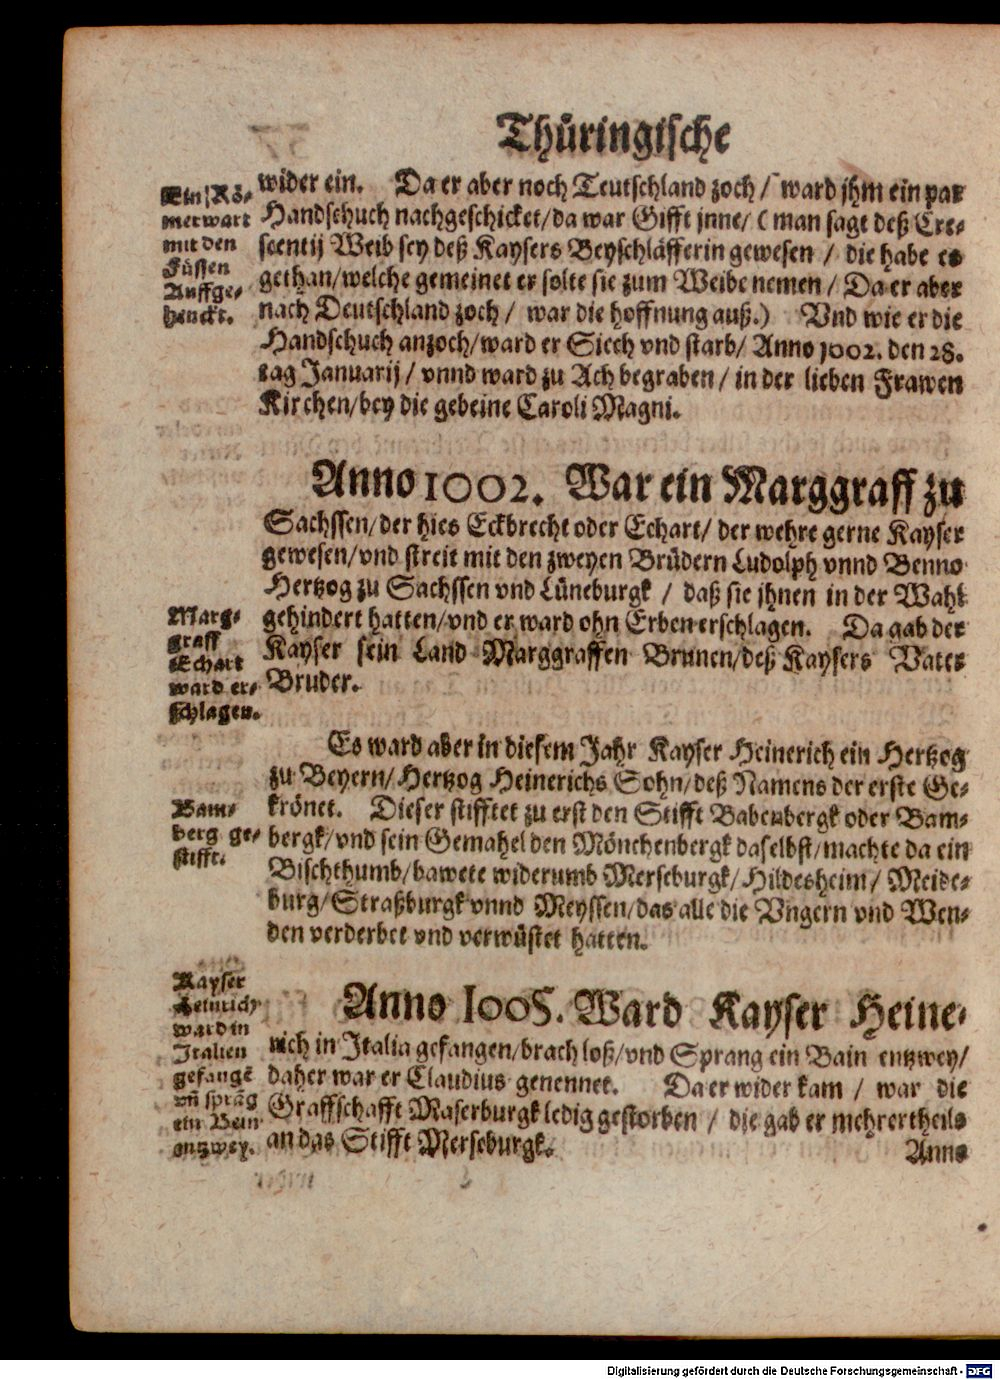 Thüringische
Ein Rö-
mer wart
mit den
Füssen
Auffge-
henckt.
wider ein. Da er aber noch Teutschland zoch / ward jhm ein par
Handschuch nachgeschicket/da war Gifft jnne/ (man sagt deß Cre-
scentij Weib sey deß Kaysers Beyschläfferin gewesen / die habe es
gethan/welche gemeinet er solte sie zum Weibe nemen / Da er aber
nach Deutschland zoch / war die hoffnung auß.) Vnd wie er die
Handschuch anzoch/ward er Siech vnd starb/ Anno 1002. den 28.
tag Januarij / vnnd ward zu Ach begraben / in der lieben Frawen
Kirchen/bey die gebeine Caroli Magni.
Anno 1002. War ein Marggraff zu
Sachssen/der hies Eckbrecht oder Echart/ der wehre gerne Kayser
gewesen/vnd streit mit den zweyen Brüdern Ludolph vnnd Benno
Hertzog zu Sachssen vnd Lüneburgk / daß sie jhnen in der Wahl
gehindert hatten/vnd er ward ohn Erben erschlagen. Da gab der
Kayser sein Land Marggraffen Brunen/deß Kaysers Vater
Bruder.
Marg-
graff
Echart
ward er-
schlagen.
Es ward aber in diesem Jahr Kayser Heinerich ein Hertzog
zu Beyern/Hertzog Heinerichs Sohn/deß Namens der erste Ge-
krönet. Dieser stifftet zu erst den Stifft Babenbergk oder Bam-
bergk/vnd sein Gemahel den Mönchenbergk daselbst/machte da ein
Bischthumb/bawete widerumb Merseburgk/Hildesheim/ Meide-
burg/Straßburgk vnnd Meyssen/das alle die Vngern vnd Wen-
den verderbet vnd verwüstet hatten.
Bam-
berg ge-
stifft.
Kayser
Heinrich
ward in
Italien
gefangē
vñ sprāg
ein Bein
entzwey.
Anno 1005. Ward Kayser Heine-
rich in Italia gefangen/brach loß/vnd Sprang ein Bain entzwey/
daher war er Claudius genennet. Da er wider kam / war die
Graffschafft Maserburgk ledig gestorben / die gab er mehrertheils
an das Stifft Merseburgk.
Anno
Digitalisierung gefördert durch die Deutsche Forschungsgemeinschaft - DFG